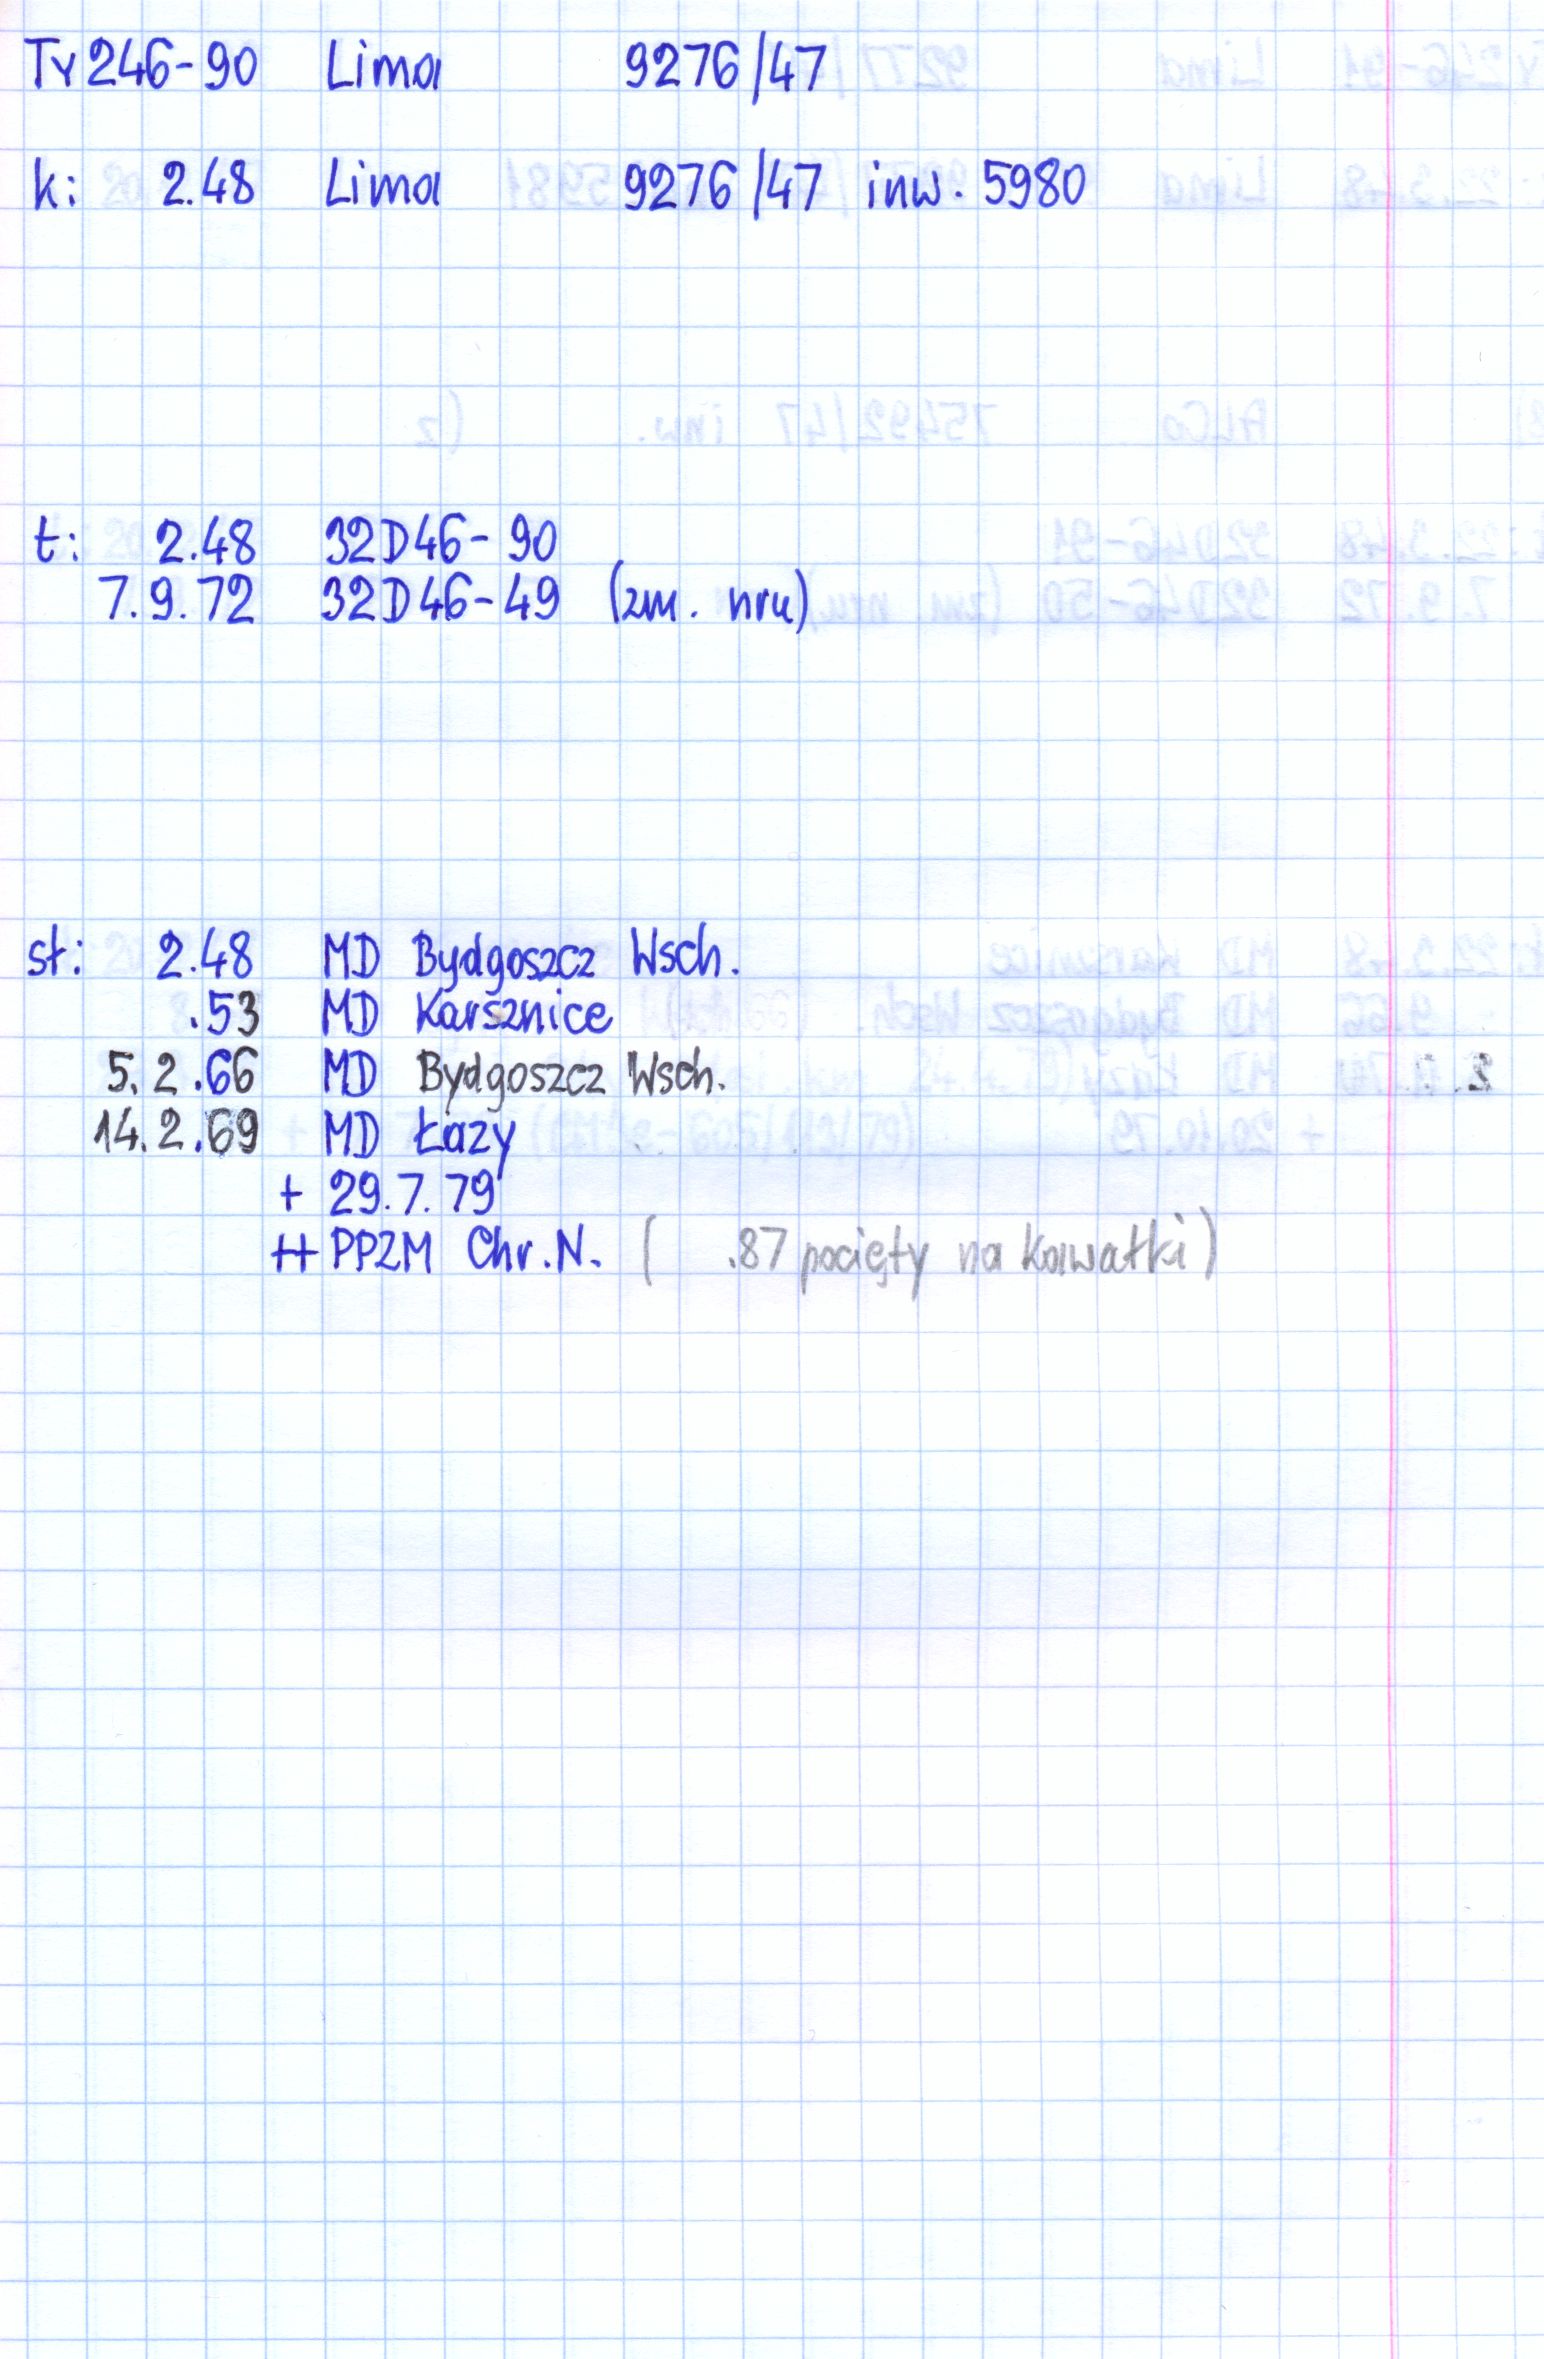 Ty246-90 Lima 9276/47
k: 2.48 Lima 9276/47 inw. 5980
t: 2.48 32D46-90
7.9.72 32D46-49 (zm. nru)
st: 2.48 MD Bydgoszcz Wsch.
.53 MD Karsznice
5.2.66 MD Bydgoszcz Wsch.
14.2.69 MD Łazy
+ 29.7.79
++ PPZM Chr.N. ( .87 pocięty na kawałki)